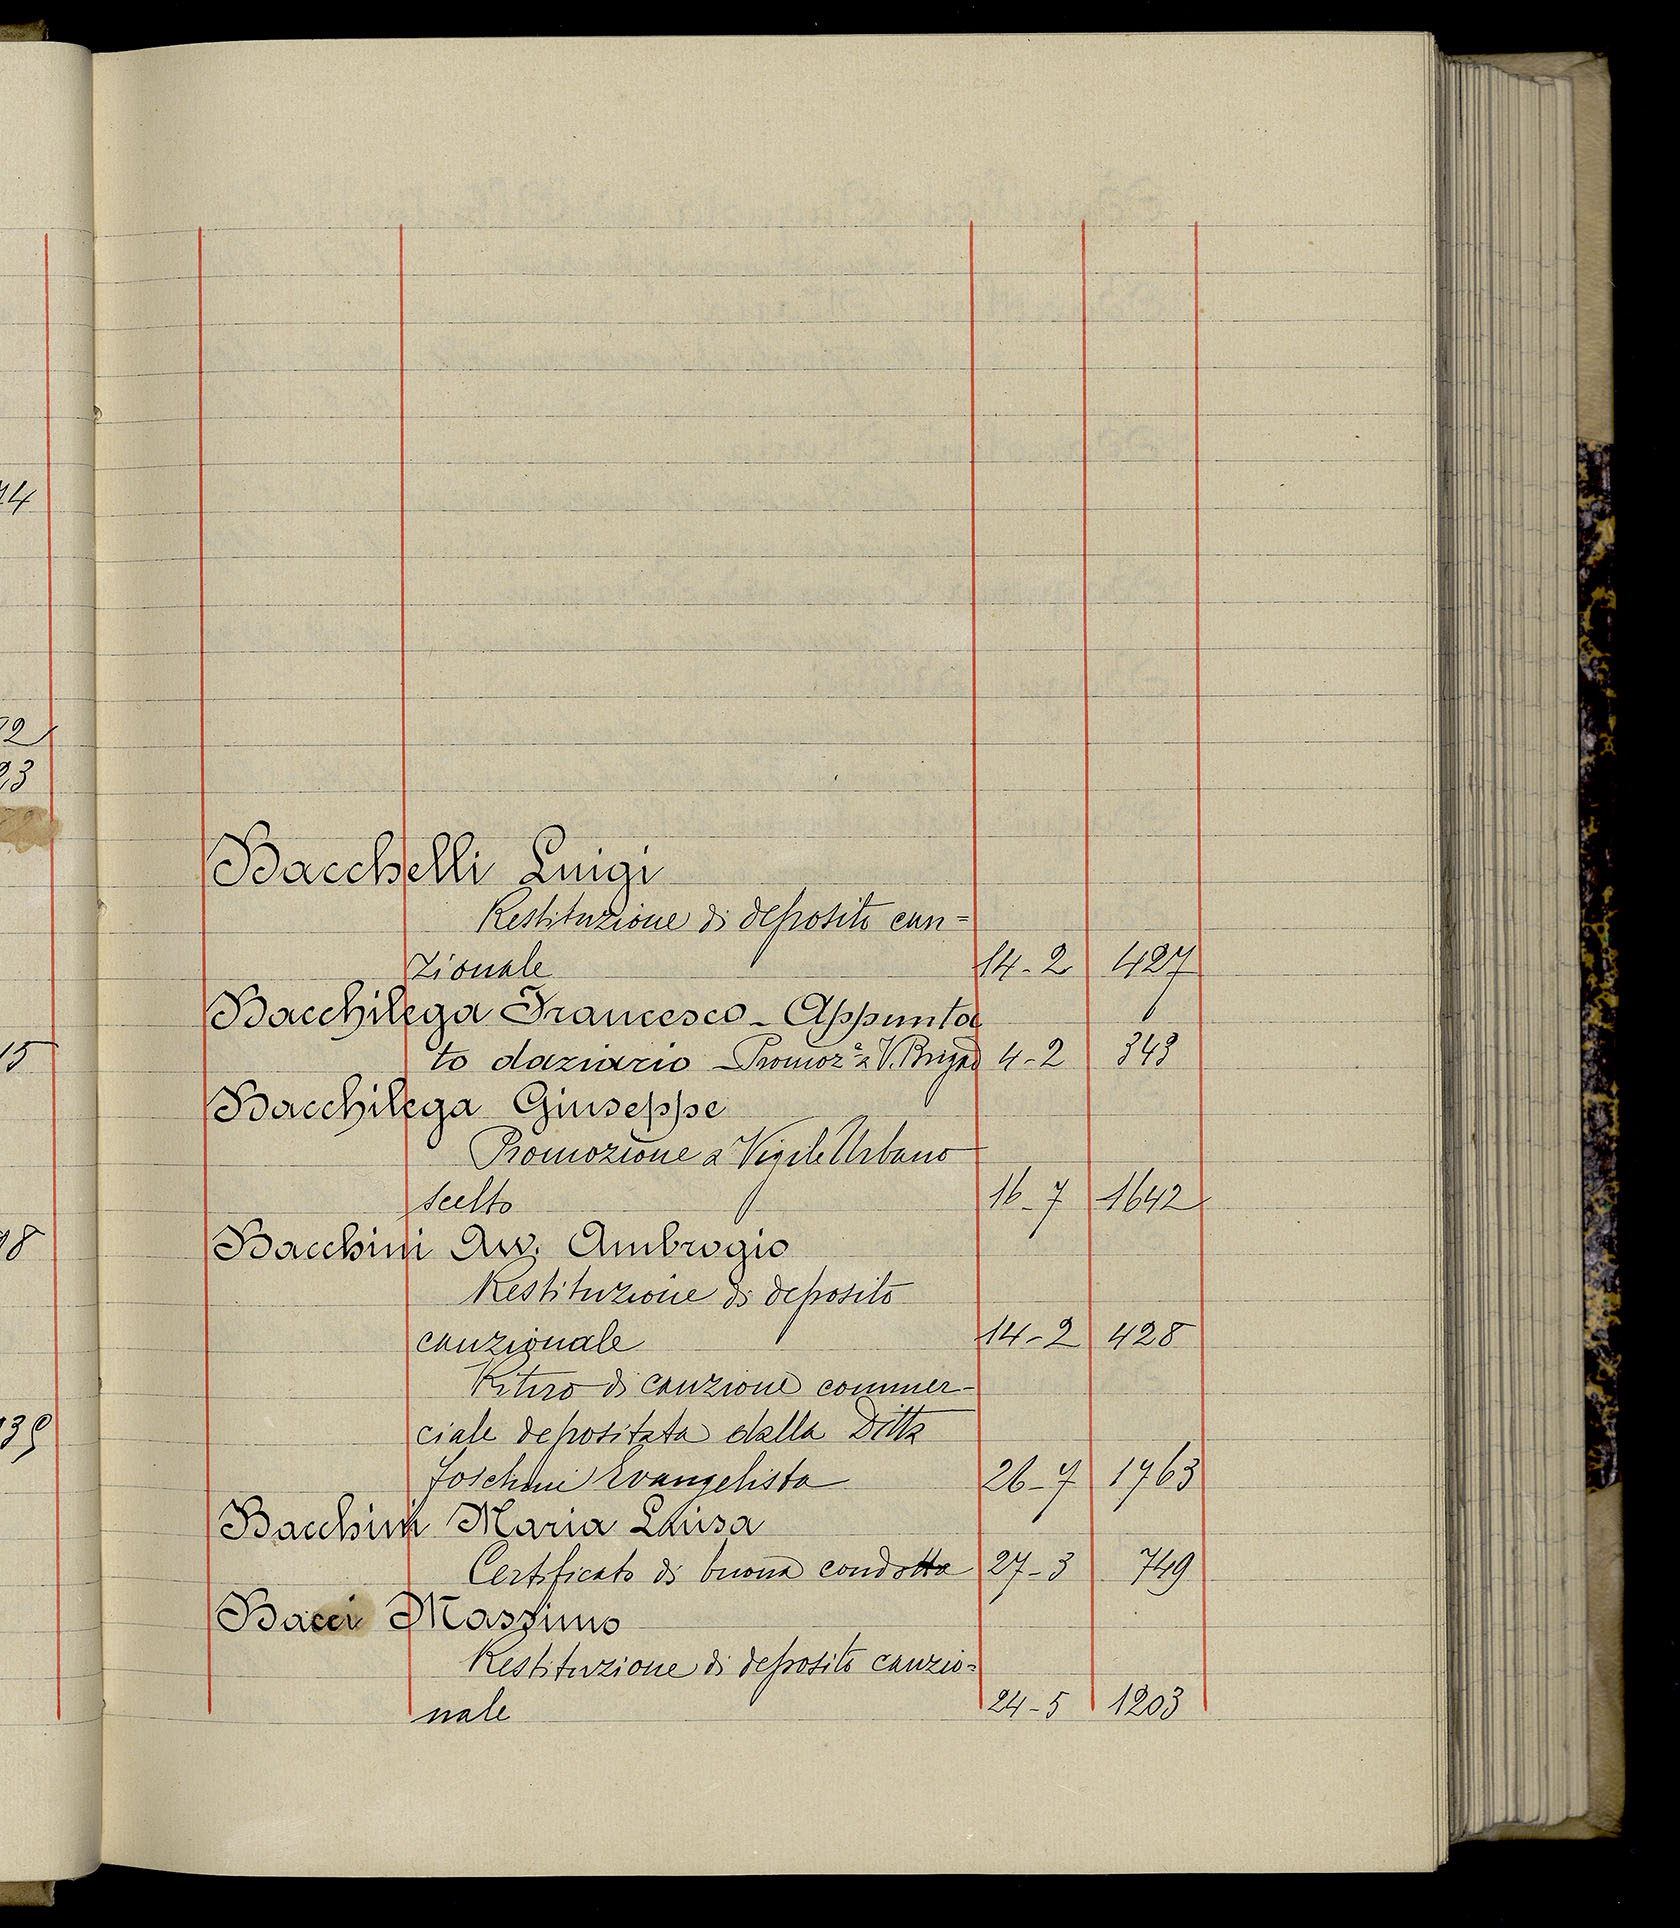 74
72
23
15
98
139
Bacchelli Luigi
Restituzione di deposito cau=
zionale 14-2 427
Bacchilega Francesco - Appunta
to daziario - Promoz.e a V. Brigad 4-2 343
Bacchilega Giuseppe
Promozione a Vigile Urbano
scelto 16-7 1642
Bacchini Avv. Ambrogio
Restituzione di deposito
cauzionale 14-2 428
Ritiro di cauzione commer-
ciale depositata dalla Ditta
Foschini Evangelista 26-7 1763
Bacchini Maria Luisa
Certificato di buona condotta 27-3 749
Bacci Massimo
Restituzione di deposito cauzio=
nale 24-5 1203